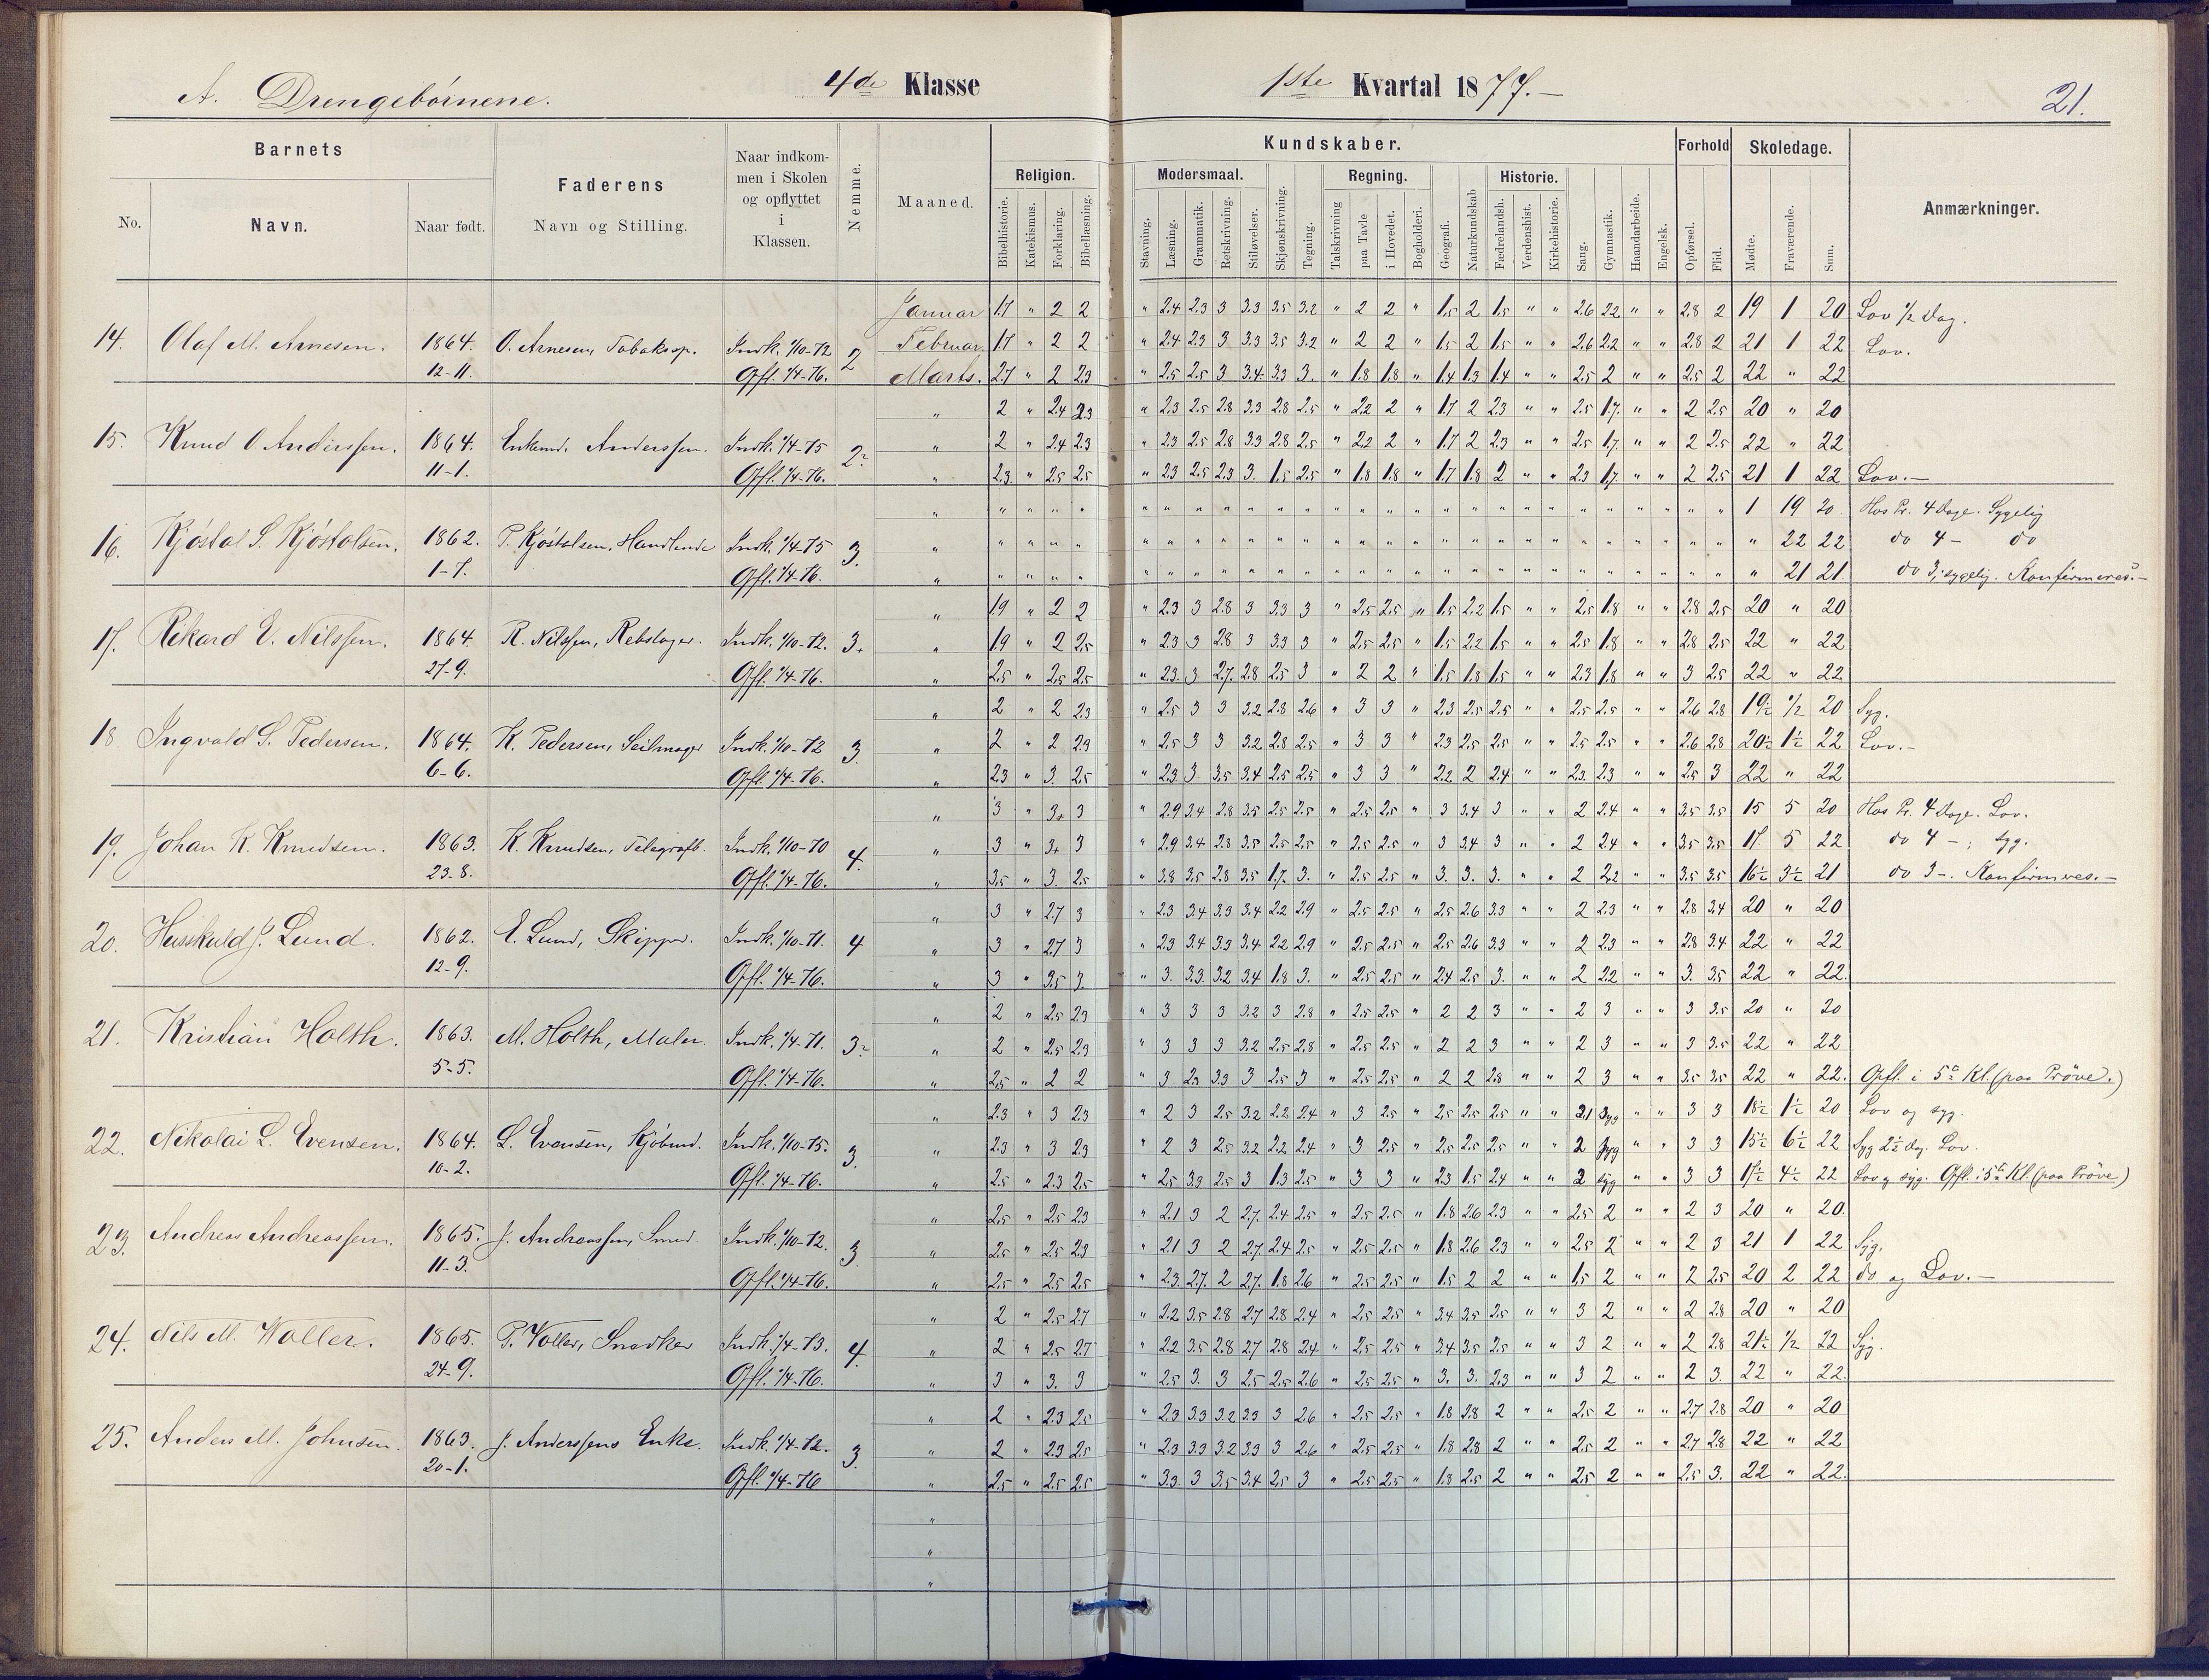 A. Drengebörnene.
4de Klasse
1ste Kvartal 1877.-
21.
Barnets
No.
Navn.
Naar født.
Faderens
Navn og Stilling.
Naar indkom-
men i Skolen
og opflyttet
i
Klassen.
Nemme.
Maaned.
Kundskaber.
Religion.
Bibelhistorie.
Katekismus.
Forklaring.
Bibellæsning.
Modersmaal.
Stavning.
Læsning.
Grammatik.
Retskrivning.
Stiløvelser.
Skjønskrivning.
Tegning.
Regning.
Talskrivning
paa Tavle
i Hovedet.
Bogholderi.
Geografi.
Naturkundskab
Historie.
Fædrelandsh.
Verdenshist.
Kirkehistorie.
Sang.
Gymnastik.
Haandarbeide.
Engelsk.
Forhold
Opførsel.
Flid.
Skoledage.
Mødte.
Fraværende.
Sum.
Anmærkninger.
Januar 1.7 " 2 2 " 2.4 2.3 3 3.3 3.5 3.2 " 2 2 " 1.5 2 1.5 " " 2.6 2.2 " " 2.8 2 19 1 20 Lov 1/2 Dag.
14. Olaf M. Arnesen. 1864. O. Arnesen, Tobaksp. Indk. 1/10-72 2 Februar 1.7 " 2 2 " 2.4 2.3 3 3.3 3.5 3.2 " 2 2 " 1.5 2 1.5 " " 2.6 2.2 " " 2.8 2 21 1 22 Lov.
12-11. Opfl. 1/4-76. Marts. 2.7 " 2 2.3 " 2.5 2.5 3 3.4 3.3 3. " 1.8 1.8 " 1.4 1.3 1.4 " " 2.5 2 " " 2.5 2 22 " 22
" 2 " 2.4 2.3 " 2.3 2.5 2.8 3.3 2.8 2.5 " 2.2 2 " 1.7 2 2.3 " " 2.5 1.7. " " 2 2.5 20 " 20
15. Knud O Anderssen. 1864. Anderssen. Indk. 1/4-75 2 " 2 " 2.4 2.3 " 2.3 2.5 2.8 3.3 2.8 2.5 " 2.2 2 " 1.7 2 2.3 " " 2.5 1.7. " " 2 2.5 22 " 22
11-1. Opfl. 1/4-76. " 2.3. " 2.5 2.5 " 2.3 2.5 2.3 3. 1.5 2.5 " 1.8 1.8 " 1.7 1.8 2 " " 2.3 1.7. " " 2 2.5 21 1 22 Lov.-
" " " " " " " " " " " " " " " " " " " " " " " " " " " 1 19 20 Hos Pr. 4 Dage. Sygelig
16. Kjøstol S. Kjøstolsen. 1862. P. Kjøstolsen, Handlende Indk. 1/4-75 3. " " " " " " " " " " " " " " " " " " " " " " " " " " " " 22 22 do 4- do
1-7. Opfl. 1/4-76. " " " " " " " " " " " " " " " " " " " " " " " " " " " " 21 21. do 3, sygelig. Konfirmeres.-
" 1.9 " 2 2 " 2.3 3 2.8 3 3.3 3 " 2.5 2.5 " 1.5 2.2 1.5 " " 2.5 1.8 " " 2.8 2.5 20 " 20
17. Rikard E. Nilssen. 1864. R. Nilssen, Rebslager. Indk. 1/10-72. 3+ " 1.9 " 2 2.5 " 2.3 3 2.8 3 3.3 3 " 2.5 2.5 " 1.5 2.2 1.5 " " 2.5 1.8 " " 2.8 2.5 22 " 22
27-9. Opfl. 1/4-76. " 2.5 " 2.5 2.5 " 2.3. 3 2.7. 2.8 2.5 3 " 2 2 " 1.5 1.8 1.5 " " 2.3 1.8 " " 3 2.5 22 " 22
" 2 " 2 2.3 " 2.5 3 3 3.2 2.8 2.6 " 3 3 " 2.3 2.5 2.5 " " 2.5 2.5 " " 2.6 2.8 19½ 1/2 20 Syg.
18 Ingvald S. Pedersen. 1864. K. Pedersen, Seilmager Indk. 1/10-72 3. " 2 " 2 2.3 " 2.5 3 3 3.2 2.8 2.5 " 3 3 " 2.3 2.5 2.5 " " 2.5 2.5 " " 2.6 2.8 20½ 1½ 22 Lov.-
6-6. Opfl. 1/4-76. " 2.3 " 3. 2.5 " 2.3. 3. 3.5 3.4 2.5 2.5 " 3 3 " 2.2 2 2.4 " " 2.3. 2.3 " " 2.5 3 22 " 22
" 3 " 3+ 3 " 2.9 3.4 2.8 3.5 2.5 2.5 " 2.5 2.5 " 3 3.4 3 " " 2 2.4 " " 3.5 3.5 15 5 20 Hos Pr. 4 Dage. Lov.
19. Johan K. Knudsen. 1863. K. Knudsen, Telegrafb. Indk. 1/10-70 4. " 3 " 3+ 3 " 2.9 3.4 2.8 3.5 2.5 2.5 " 2.5 2.5 " 3 3.4 3 " " 2 2.4 " " 3.5 3.5 17. 5 22 do 4 -, syg.
23-8. Opfl. 1/4-76. " 3.5 " 3. 2.5 " 3.8 3.5 2.8 3.5 1.7. 3. " 2.5 2.5 " 3. 3. 3. " " 2 2.2 " " 3.5 3.5 16½ 3½ 21 do 3-. Konfirmeres.-
" 3 " 2.7 3 " 2.3 3.4 3.3 3.4 2.2 2.9 " 2.5 2.5 " 2.5 2.6 3.3 " " 2 2.3 " " 2.8 3.4 20 " 20
20. Lund. 1862. E. Lund, Skipper. Indk. 1/10-71. 4 " 3 " 2.7 3 " 2.3 3.4 3.3 3.4 2.2 2.9 " 2.5 2.5 " 2.5 2.6 3.3 " " 2 2.3 " " 2.8 3.4 22 " 22
12-9. Opfl. 1/4-76. " 3 " 3.5 3. " 3. 3.3. 3.2 3.4 1.8 3. " 2.5 2.5 " 2.4 2.5 3. " " 2 2.2 " " 3. 3.5 22 " 22.
" 2 " 2.5 2.3 " 3 3 3 3.2 3 2.8 " 2.5 2.5 " 2 2 3 " " 2 3 " " 3 3.5 20 " 20
21. Kristian Holth. 1863. M. Holth, Maler. Indk. 1/4-71. 3 " 2 " 2.5 2.3 " 3 3 3 3.2 2.5 2.8 " 2.5 2.5 " 2 2 3 " " 2 3 " " 3 3.5 22 " 22
5-5. Opfl. 1/4-76. " 2.5 " 2 2 " 3 2.3 3.3 3 2.5 3 " 2.5 2.5 " 2 2 2.8 " " 2 3 " " 3.5 3.5 22 " 22. Opfl. i 5te Kl. (paa Prøve.)
" 2.3 " 3 2.3 " 2 3 2.5 3.2 2.2 2.4 " 3 2.5 " 2.5 2.5 2.5 " " 2.1 syg " " 3 3 18½ 1½ 20 Lov og syg.
22. Nikolai L. Evensen. 1864. L. Evensen, Kjøbmd. Indk. 1/10-75. 3. " 2.3 " 3 2.3 " 2 3 2.5 3.2 2.2 2.4 " 3 2.5 " 2.5 2.5 2.5 " " 2 syg " " 3 3 15½ 6½ 22 Syg 2½ Dg. Lov.
10-2. Opfl. 1/4-76. " 2.5 " 2.3 2.5 " 2.5 3.3 2.5 3 1.3 2.5 " 3 3 " 2.3 1.5 2.4 " " 2 syg " " 3 3 17½ 4½ 22 Lov og syg. Opfl. i 5te Kl. (paa Prøve)
" 2.5 " 2.5 2.3 " 2.1 3 2 2.7. 2.4 2.5 " 2.5 2.5 " 1.8 2.6 2.3 " " 2.5 2 " " 2 3 20 " 20.
23. Andreas Andreassen. 1865. J. Andreassen, Smed. Indk. 1/10-72. 3 " 2.5 " 2.5 2.3 " 2.1 3 2 2.7. 2.4 2.5 " 2.5 2.5 " 1.8 2.6 2.3 " " 2.5 2 " " 2 3 21 1 22 Syg.
11-3. Opfl. 1/4-76. " 2.5 " 2.5 2.5 " 2.3. 2.7. 2 2.7. 1.8 2.6 " 2.5 2.5 " 1.5 2 2 " " 1.5 2 " " 2 2.5 20 2 22 do og Lov.-
" 2 " 2.5 2.7 " 2.2 3.5 2.8 2.7 2.8 2.4 " 2.5 2.5 " 3.4 3.5 2.5 " " 3 2 " " 2 2.8 20 " 20
24. Nils M. Woller. 1865. P. Woller, Snedker Indk. 1/4-73. 4. " 2 " 2.5 2.7 " 2.2 3.5 2.8 2.7 2.8 2.4 " 2.5 2.5 " 3.4 3.5 2.5 " " 3 2 " " 2 2.8 21½ 1/2 22 Syg.
24-9. Opfl. 1/4-76. " 3 " 3. 3 " 2.5 3. 3 2.5 2.5 2.6 " 2.5 2.5 " 3. 3. 2.3 " " 3 2 " " 2 3. 22 " 22.
" 2 " 2.3 2.5 " 2.3 3.3 3.2 3.3 3 2.6 " 2.5 2.5 " 1.8 2.8 2 " " 2.5 2 " " 2.7 2.8 20 " 20
25. Anders M. Johnsen. 1863. J. Anderssens Enke. Indk. 1/4-72. 3. " 2 " 2.3 2.5 " 2.3 3.3 3.2 3.3 3 2.6 " 2.5 2.5 " 1.8 2.8 2 " " 2.5 2 " " 2.7 2.8 22 " 22
20-1. Opfl. 1/4-76 " 2.5 " 2.5 2.5 " 3.3. 3 3.5 3.4 2.5 3 " 2.5 2.5 " 1.8 2.5 2 " " 2.5 2 " " 2.5 3. 22 " 22.
"
"
"